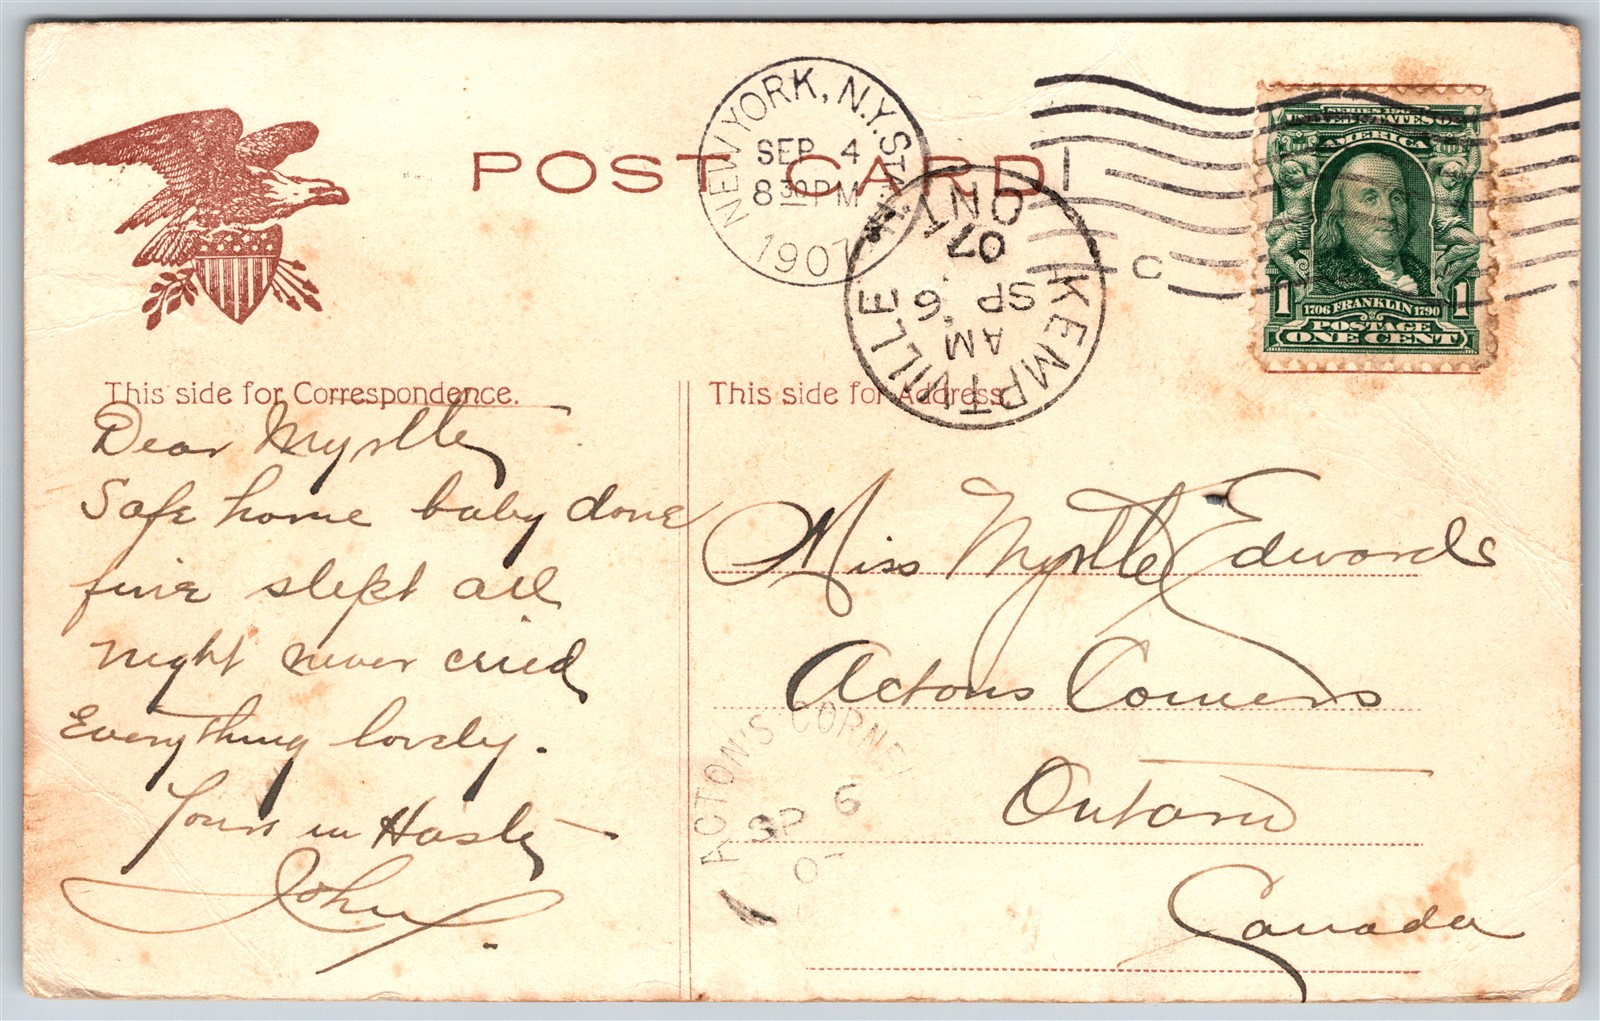 POST CARD
NEW YORK, N.Y. STA.
SEP 4
8 30 PM
1907
C
KEMPTVILLE
ONT
AM 6
SP
07
SERIES 1902
UNITED STATES OF
AMERICA
1 1
1706 FRANKLIN 1790
POSTAGE
ONE CENT
This side for Correspondence.
Dear Myrtle
Safe home baby done
fine slept all
night never cried
Everything lovely.
Yours in Haste
John
This side for Address.
Miss Myrtle Edwards
Actons Corners
Ontario
Canada
ACTON'S CORNE
SP 6